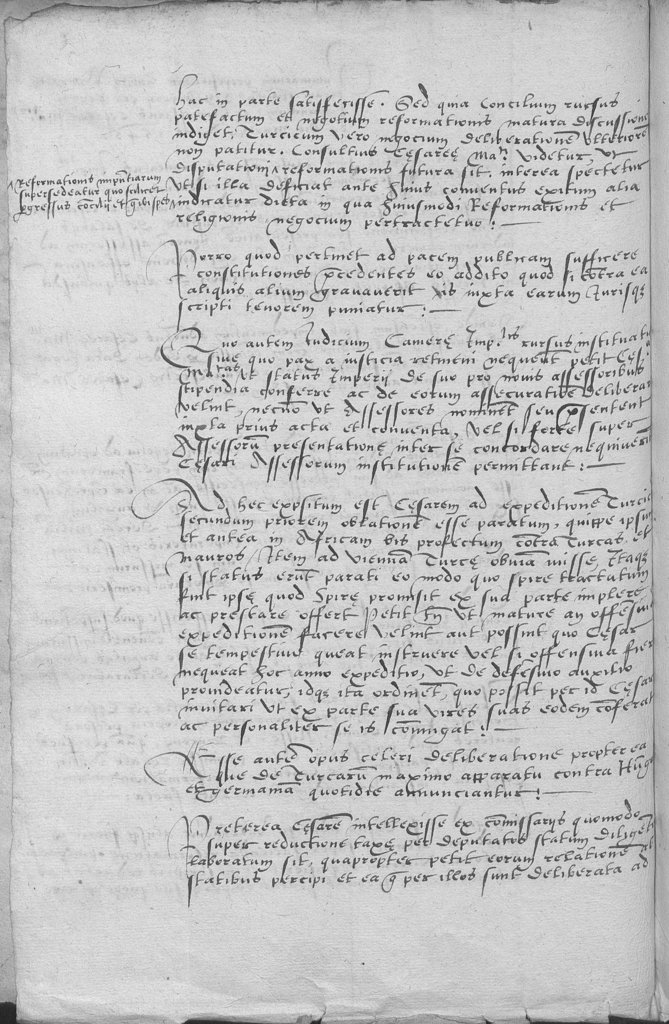 hac in parte satisfecisse. Sed quia Concilium rursus
patefactum et negotium reformationis matura discussione
indiget, Turcicum vero negocium deliberationē vlteriorē
non patitur. Consultius Cęsareę Maᵗⁱ videtur, vt
disputationi ^ reformationis futura sit, interea spectetur
Vt si illa deficiat ante huius conventus exitum alia
indicatur dieta in qua huiusmodi Reformationis et
religionis negocium pertractetur :—
^ Reformationis
supersedeatur quo scilicet
p̱gressus concilij et
Porro quod pertinet ad pacem publicam sufficere
constitutiones p̄cedentes eo addito quod si cōtra ea
aliquis alium gravaverit is iuxta earum Iurisqȝ
scripti tenorem puniatur :—
Quo autem Iudicium Camerę Imp.ˡⁱˢ rursus instituat
sine quo pax a iusticia retineri nequeunt petit Cęs.
Maᵗᵃˢ vt status Imperij de suo pro novis assessoribus
stipendia conferre ac de eorum assecuratiōe delibera
velint, necnō vt Assessores nominēt seu p̄sentent
iuxta prius acta et conventa, vel si forte super
Assessorū presentatione inter se concordare nequiveri
Cęsari Assessorum institutionē permittant :—
Ad hec expositum est Cęsarem ad expeditionē Turcic
secundum priorem oblationē esse paratum, quippe ipsum
et antea in Africam bis profectum cōtra Turcas et
mauros Item ad viennā Turcę obviā iuisse, Itaqȝ
si status erūt parati eo modo quo spire tractatum
fuit ipsę quod Spirę promisit ex sua parte implere
ac prestare offert Petit tn̄ vt mature an offesiua
expeditionē facere velint aut possint quo Cęsar
se tempestiue queat instruere vel si offensiua fier
nequeat hoc anno expeditio, vt de defēsiuo auxilio
provideatur, idqȝ ita ordinēt, quo possit per id Cęsar
invitari vt ex parte sua vires suas eodem cōferat
ac personaliter se is coniungat :—
Esse autē opus celeri deliberatione propter ea
que de Turcarū maximo apparatu contra Hung
et germaniā quotidie annunciantur :—
Preterea Cęsarē intellexisse ex cōmissarijs quomodo
super reductione taxę per deputatos statuum diligēt
laboratum sit, quapropter petit eorum relationē
statibus percipi et ea q̄ per illos sunt deliberata ad